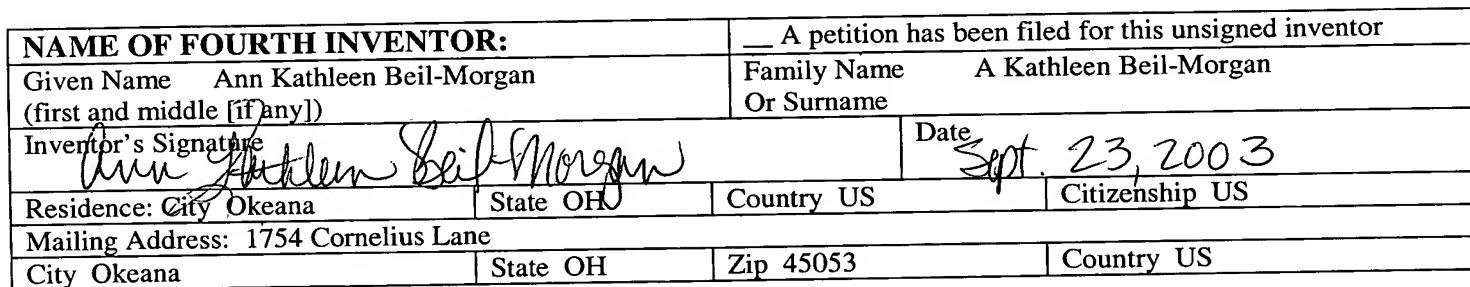 NAME OF FOURTH INVENTOR: __ A petition has been filed for this unsigned inventor
Given Name Ann Kathleen Beil-Morgan Family Name A Kathleen Beil-Morgan
(first and middle [if any]) Or Surname
Inventor's Signature Ann Kathleen Beil-Morgan Date Sept. 23, 2003
Residence: City Okeana State OH Country US Citizenship US
Mailing Address: 1754 Cornelius Lane
City Okeana State OH Zip 45053 Country US